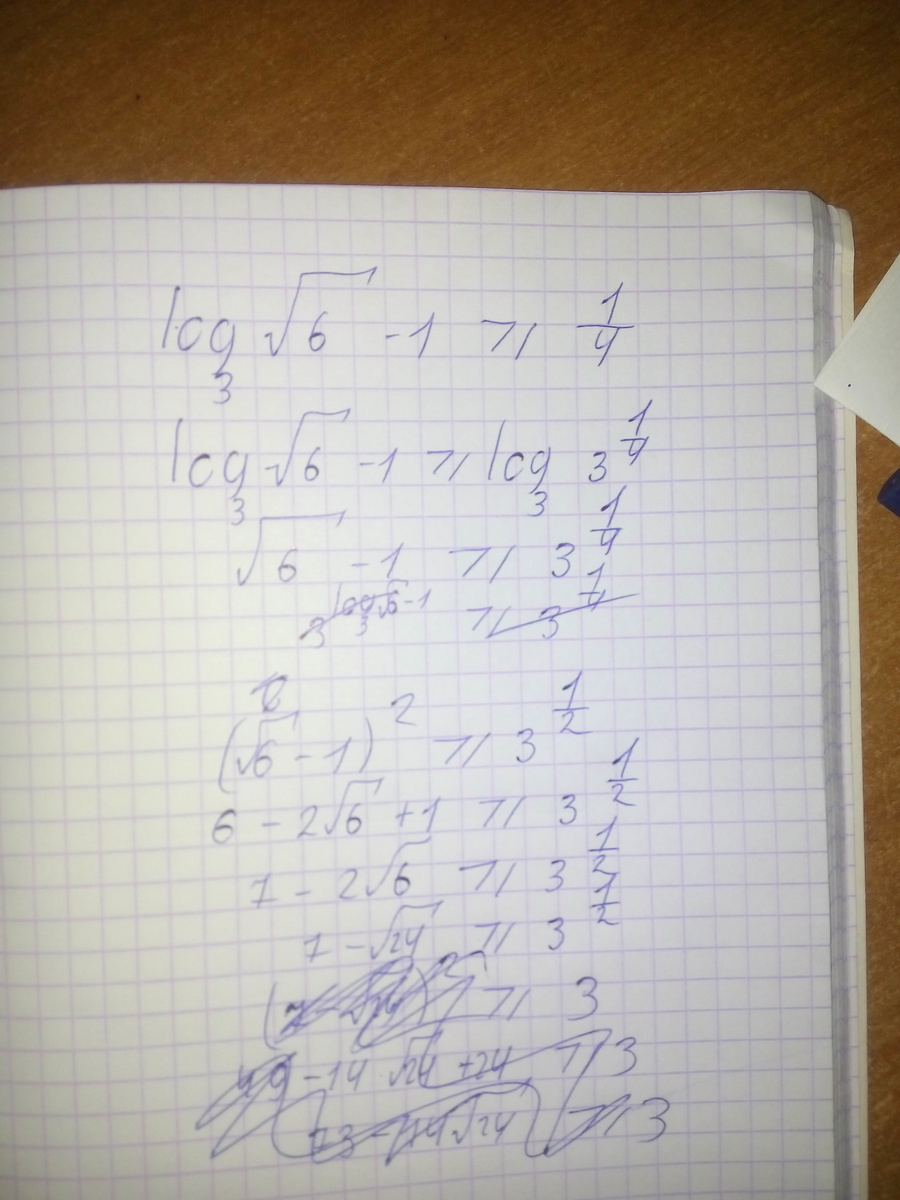 log₃ √6 - 1 ⩾ 1/4
log₃ √6 - 1 ⩾ log₃ 3^(1/4)
√6 - 1 ⩾ 3^(1/4)
3^(log₃ √6 - 1) ⩾ 3
(√6 - 1)² ⩾ 3^(1/2)
6 - 2√6 + 1 ⩾ 3^(1/2)
7 - 2√6 ⩾ 3^(1/2)
7 - √24 ⩾ 3^(1/2)
⩾ 3
49 - 14 √24 + 24 ⩾ 3
73 - 14√24 ⩾ 3